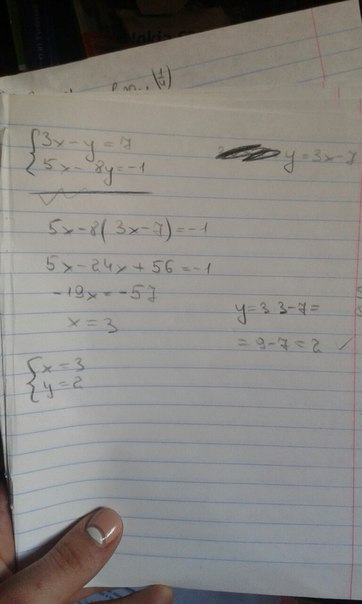 Nokia
{3x-y=7
{5x-8y=-1
y=3x-7
5x-8(3x-7)=-1
5x-24x+56=-1
-19x=-57
x=3
y=3·3-7=
=9-7=2
{x=3
{y=2